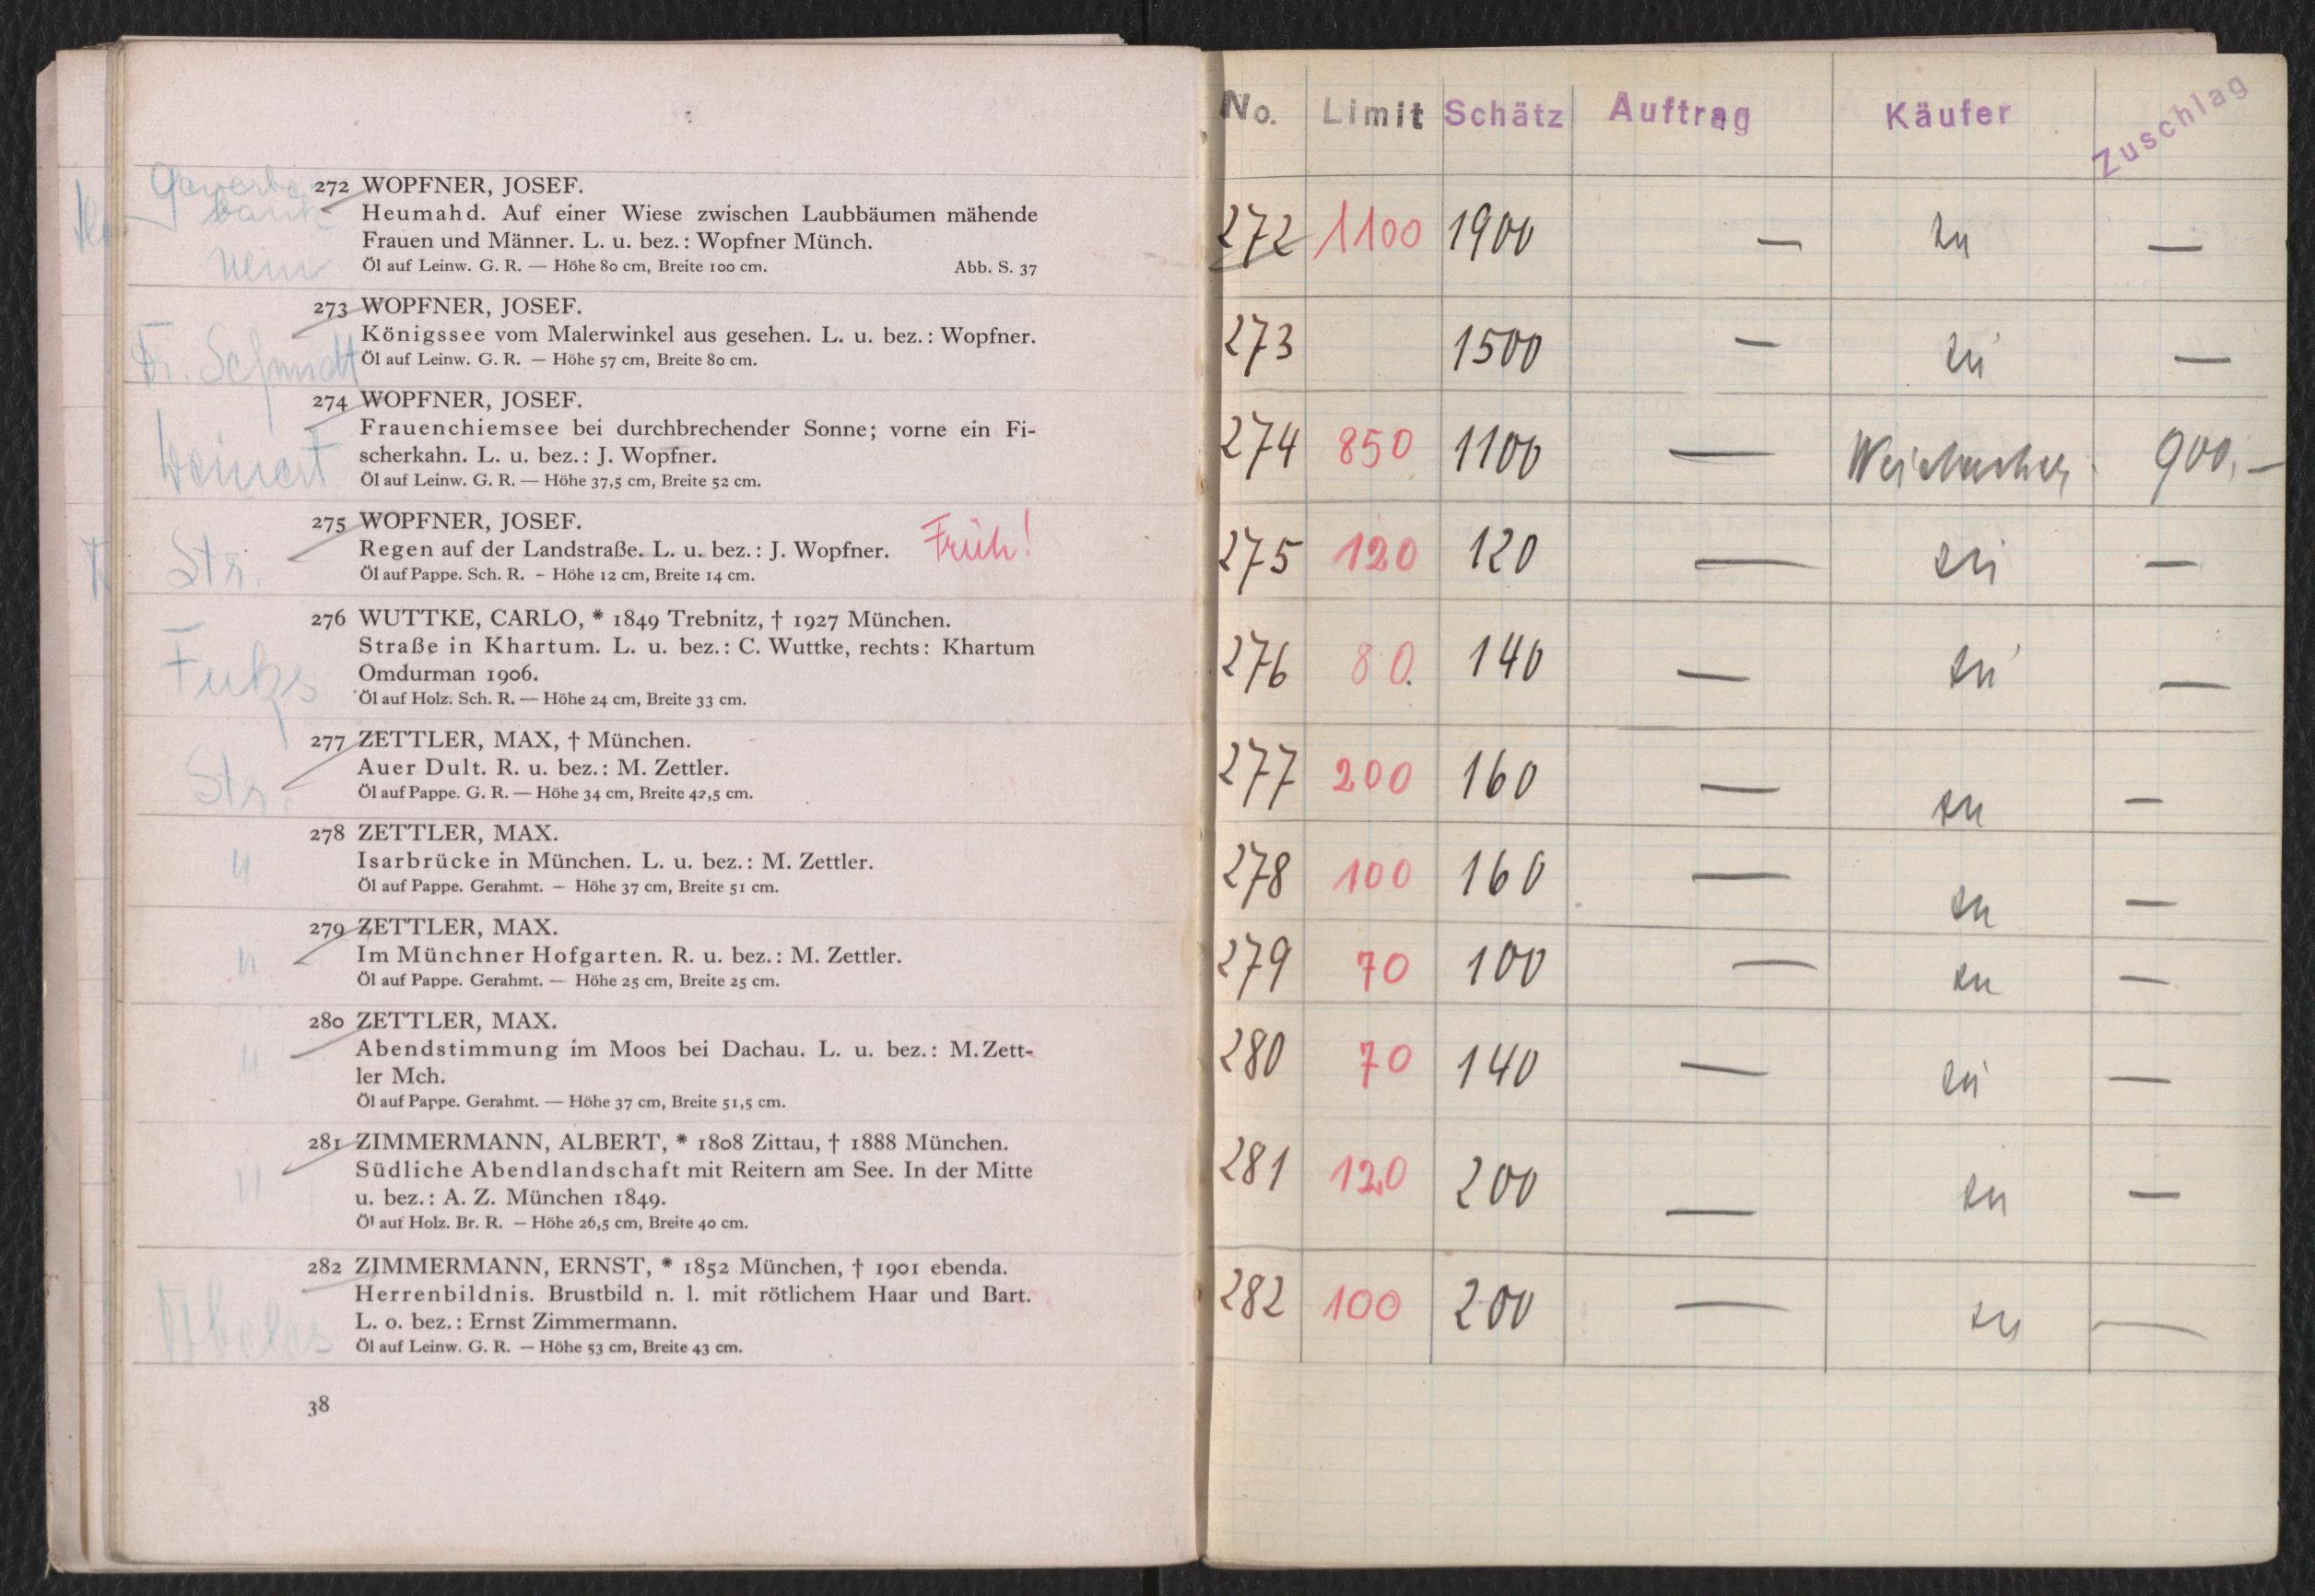 Gewerbe
bank
nein
272 WOPFNER, JOSEF.
Heumahd. Auf einer Wiese zwischen Laubbäumen mähende
Frauen und Männer. L. u. bez.: Wopfner Münch.
Öl auf Leinw. G. R. — Höhe 80 cm, Breite 100 cm. Abb. S. 37
273 WOPFNER, JOSEF.
Königssee vom Malerwinkel aus gesehen. L. u. bez.: Wopfner.
Öl auf Leinw. G. R. — Höhe 57 cm, Breite 80 cm.
Schmidt
274 WOPFNER, JOSEF.
Frauenchiemsee bei durchbrechender Sonne; vorne ein Fi-
scherkahn. L. u. bez.: J. Wopfner.
Öl auf Leinw. G. R. — Höhe 37,5 cm, Breite 52 cm.
Weinert
275 WOPFNER, JOSEF.
Regen auf der Landstraße. L. u. bez.: J. Wopfner. Früh!
Öl auf Pappe. Sch. R. – Höhe 12 cm, Breite 14 cm.
Str.
276 WUTTKE, CARLO, * 1849 Trebnitz, † 1927 München.
Straße in Khartum. L. u. bez.: C. Wuttke, rechts: Khartum
Omdurman 1906.
Öl auf Holz. Sch. R. — Höhe 24 cm, Breite 33 cm.
277 ZETTLER, MAX, † München.
Auer Dult. R. u. bez.: M. Zettler.
Öl auf Pappe. G. R. — Höhe 34 cm, Breite 42,5 cm.
Str.
278 ZETTLER, MAX.
Isarbrücke in München. L. u. bez.: M. Zettler.
Öl auf Pappe. Gerahmt. — Höhe 37 cm, Breite 51 cm.
"
279 ZETTLER, MAX.
Im Münchner Hofgarten. R. u. bez.: M. Zettler.
Öl auf Pappe. Gerahmt. — Höhe 25 cm, Breite 25 cm.
"
280 ZETTLER, MAX.
Abendstimmung im Moos bei Dachau. L. u. bez.: M. Zett-
ler Mch.
Öl auf Pappe. Gerahmt. — Höhe 37 cm, Breite 51,5 cm.
"
281 ZIMMERMANN, ALBERT, * 1808 Zittau, † 1888 München.
Südliche Abendlandschaft mit Reitern am See. In der Mitte
u. bez.: A. Z. München 1849.
Öl auf Holz. Br. R. — Höhe 26,5 cm, Breite 40 cm.
"
282 ZIMMERMANN, ERNST, * 1852 München, † 1901 ebenda.
Herrenbildnis. Brustbild n. l. mit rötlichem Haar und Bart.
L. o. bez.: Ernst Zimmermann.
Öl auf Leinw. G. R. — Höhe 53 cm, Breite 43 cm.
38
No. Limit Schätz Auftrag Käufer Zuschlag
272 1100 1900 — zu —
273 1500 — zu —
274 850 1100 — 900,—
275 120 120 — zu —
276 80. 140 — zu —
277 200 160 — zu —
278 100 160 — zu —
279 70 100 — zu —
280 70 140 — zu —
281 120 200 — zu —
282 100 200 — zu —